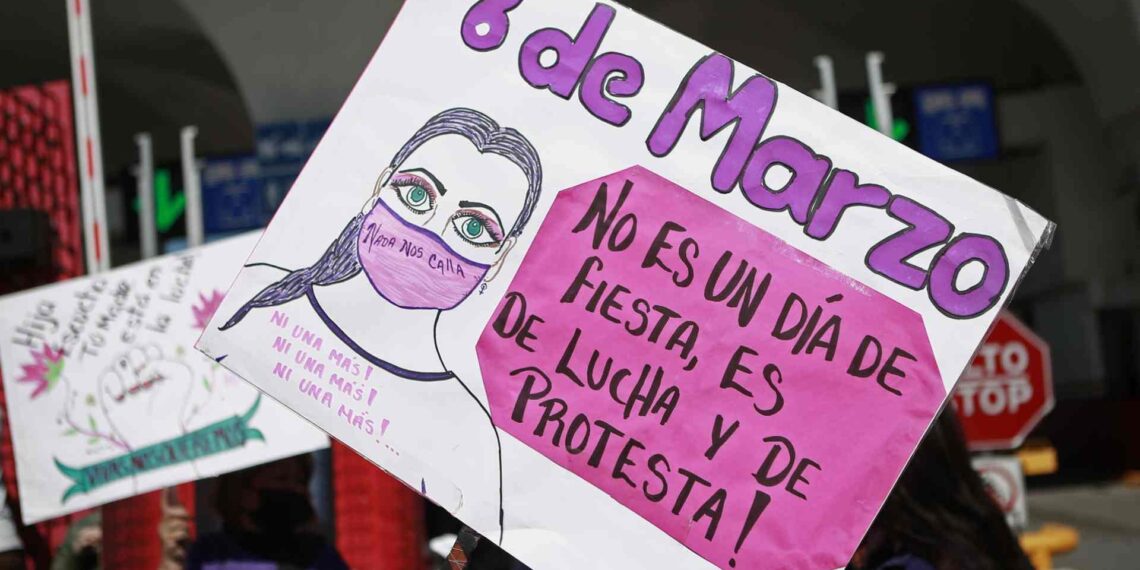 8 de Marzo
NO ES UN DÍA DE
FIESTA, ES
DE LUCHA Y DE
PROTESTA!
NADA NOS CALLA
NI UNA MÁS!
NI UNA MÁS!
NI UNA MÁS!...
Hija
escucha
tu Madre
está en
la lucha
VIVAS NOS QUEREMOS
ALTO
STOP